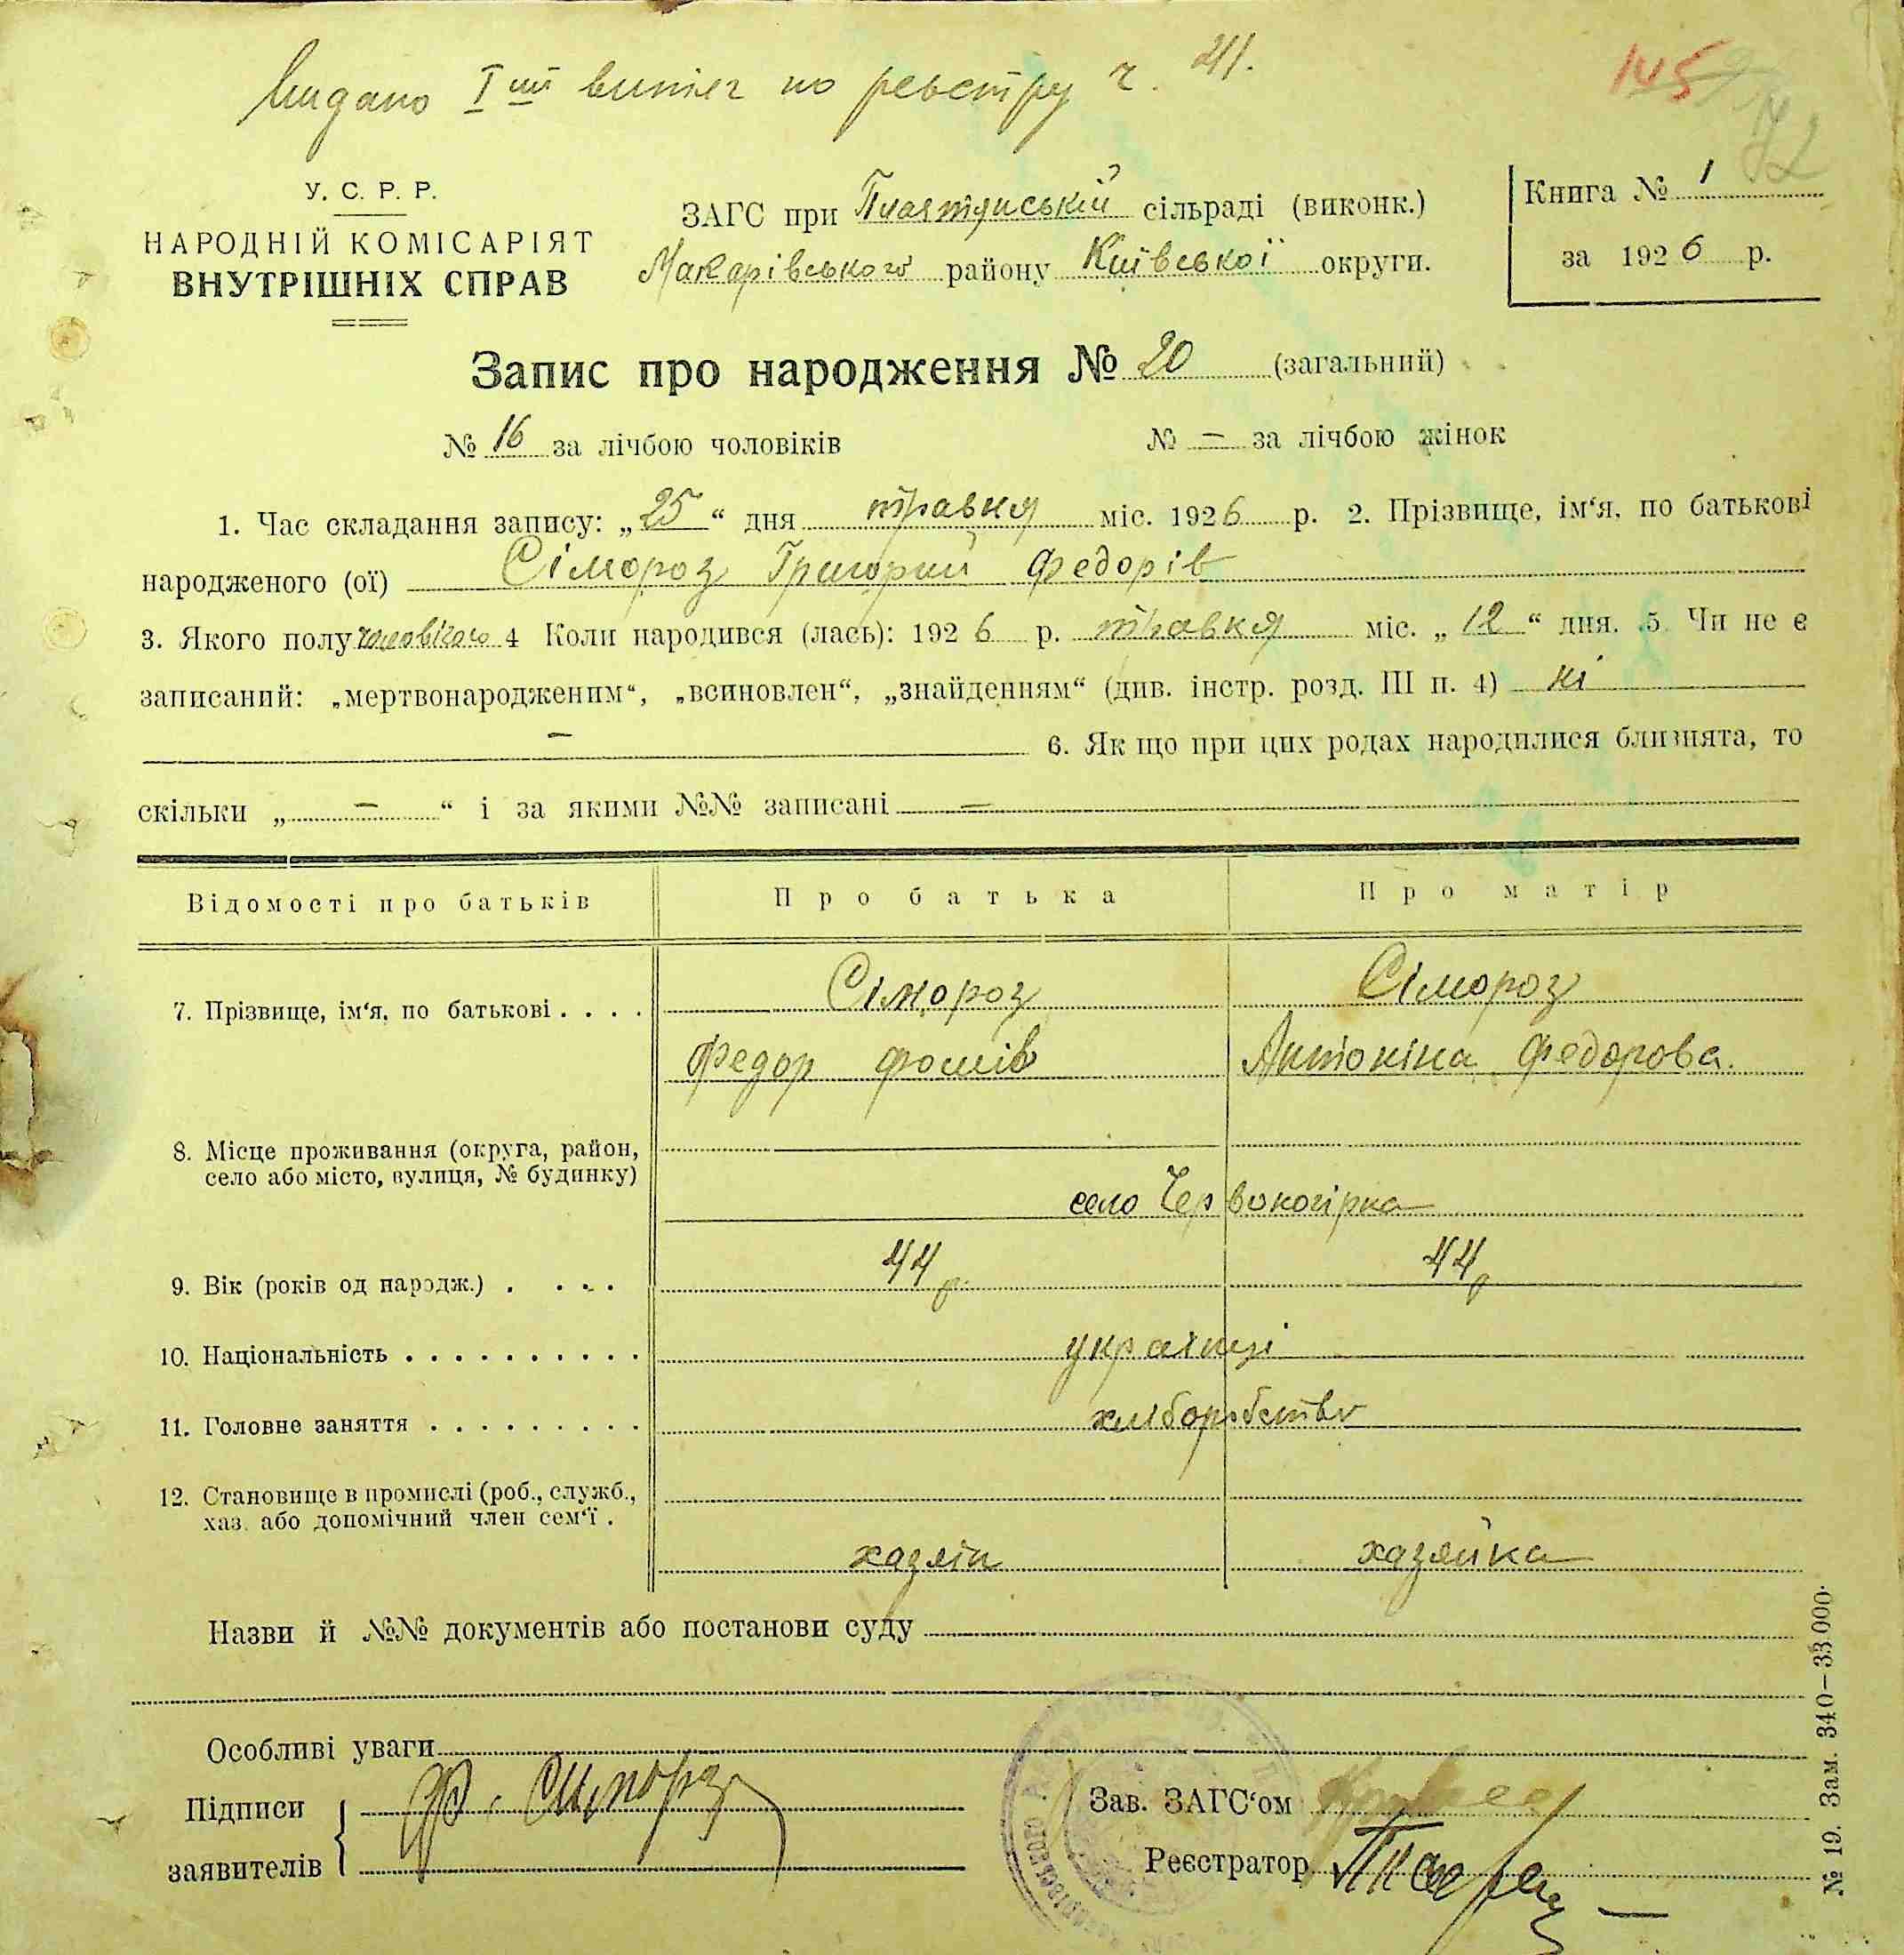 Видано I ший витяг по реєстру ч. 211.
145
72
У. С. Р. Р.
НАРОДНІЙ КОМІСАРІЯТ
ВНУТРІШНІХ СПРАВ
ЗАГС при сільраді (виконк.)
Макарівського району Київської округи.
Книга № 1
за 1926 р.
Запис про народження № 20 (загальний)
№ 16 за лічбою чоловіків № – за лічбою жінок
1. Час складання запису: „25“ дня травня міс. 1926 р. 2. Прізвище, ім‘я, по батькові
народженого (ої) Сімороз Григорий Федорів
3. Якого полу чоловічого 4 Коли народився (лась): 1926 р. травня міс. „12“ дня. 5 Чи не є
записаний: „мертвонародженим“, „всиновлен“, „знайденням“ (див. інстр. розд. III п. 4) ні
– 6. Як що при цих родах народилися близнята, то
скільки „ – “ і за якими №№ записані –
Відомості про батьків Про батька Про матір
7. Прізвище, ім‘я, по батькові . . . . Сімороз Сімороз
Федор Фомів Антоніна Федорова.
8. Місце проживання (округа, район,
село або місто, вулиця, № будинку)
село Червоногірка
9. Вік (років од народж.) . . . . 44 р. 44 р
10. Національність . . . . . . . . . . українці
11. Головне заняття . . . . . . . . . хліборобство
12. Становище в промислі (роб., служб.,
хаз. або допомічний член сем‘ї .
хазяїн хазяйка
Назви й №№ документів або постанови суду
Особливі уваги
Підписи Ф. Симороз
заявителів
Зав. ЗАГС‘ом
Реєстратор
№ 19. Зам. 340–33.000.